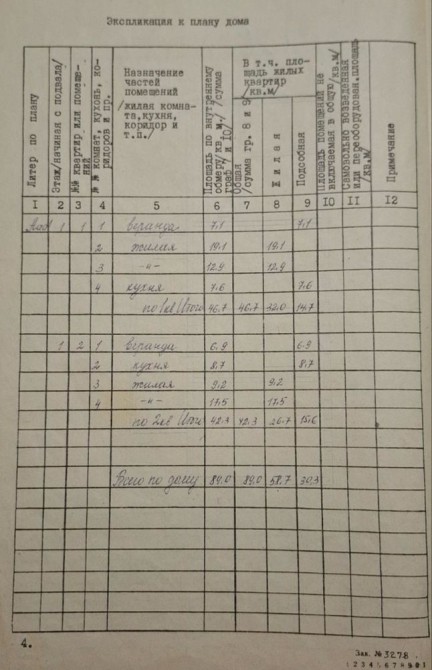 Экспликация к плану дома
Литер по плану
Этаж/начиная с подвала/
№№ квартир или помещений
№ № комнат, кухонь, коридоров и пр.
Назначение
частей
помещений
/жилая комна-
та,кухня,
коридор и
т.п./
Площадь по внутреннему
обмеру/кв.м./ /сумма
граф 7 и 10/
В т.ч. пло-
щадь жилых
квартир
/кв.м/
Общая
/сумма гр. 8 и 9/
Жилая
Подсобная
Площадь помещений не
включаемая в общую/кв.м/
Самовольно возведенная
или переоборудован.площадь
/кв.м/
Примечание
I 2 3 4 5 6 7 8 9 IO II I2
1 1 1 веранда 7.1 7.1
2 жилая 19.1 19.1
3 -"- 12.9 12.9
4 кухня 7.6 7.6
по 1 кв Итого 46.7 46.7 32.0 14.7
1 2 1 веранда 6.9 6.9
2 кухня 8.7 8.7
3 жилая 9.2 9.2
4 -"- 17.5 17.5
по 2 кв Итого 42.3 42.3 26.7 15.6
Всего по дому 89.0 89.0 58.7 30.3
4.
Зак. №3278.
1 2 3 4 5 6 7 8 9 0 1